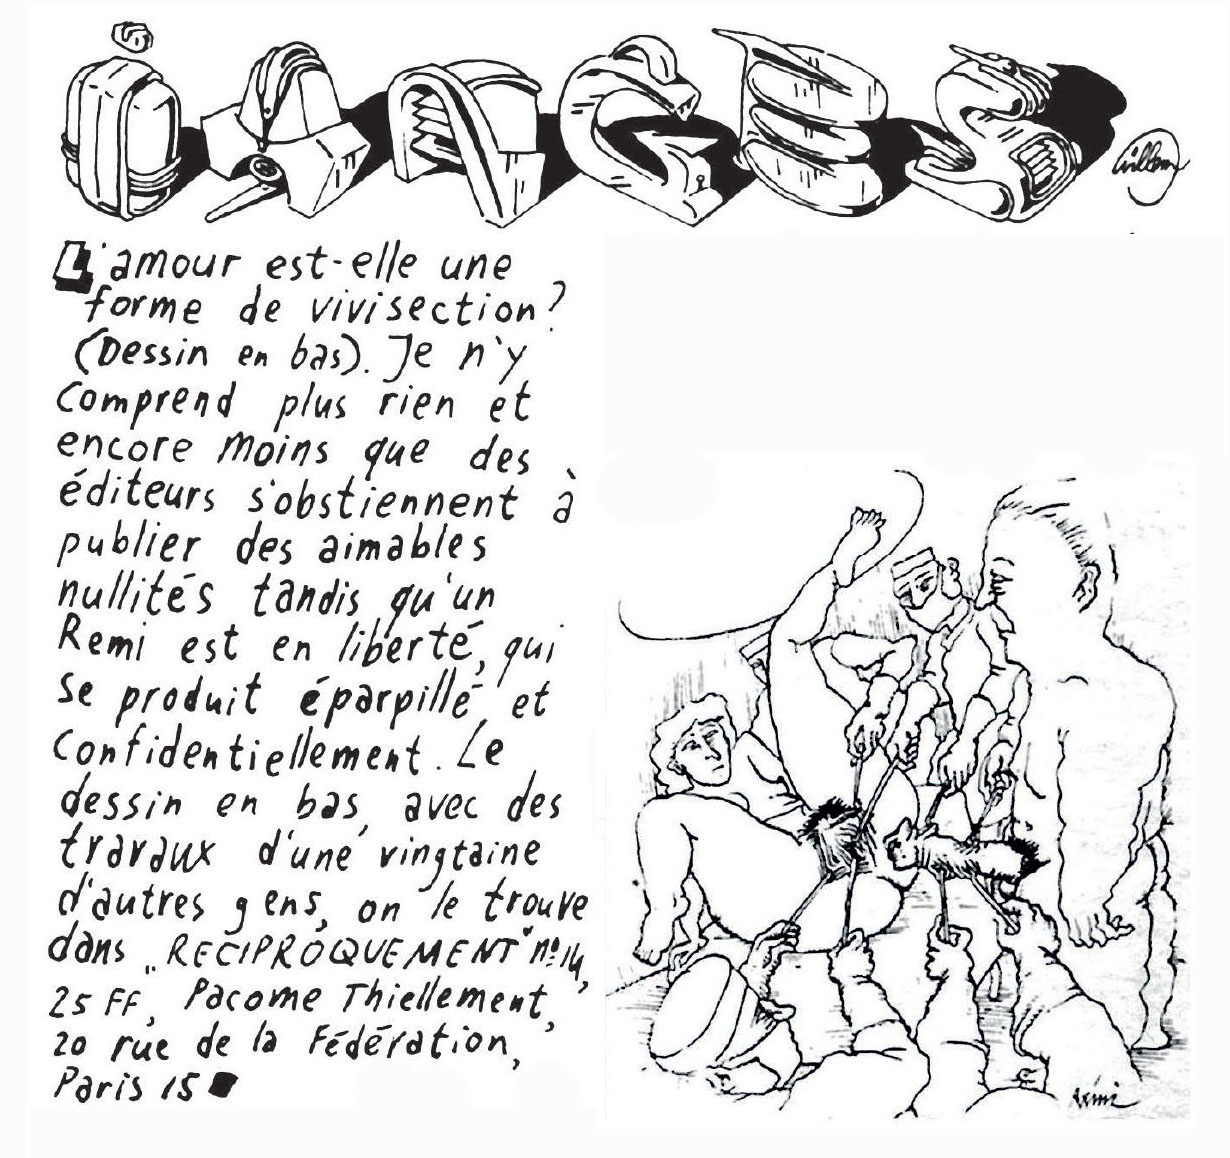 iMAGES
Willem
L'amour est-elle une
forme de vivisection?
(Dessin en bas). Je n'y
comprend plus rien et
encore moins que des
éditeurs s'obstiennent à
publier des aimables
nullités tandis qu'un
Remi est en liberté, qui
se produit éparpillé et
confidentiellement. Le
dessin en bas, avec des
travaux d'une vingtaine
d'autres gens, on le trouve
dans „RECIPROQUEMENT" nº 14,
25 FF, Pacome Thiellement,
20 rue de la Fédération,
Paris 15
rémi